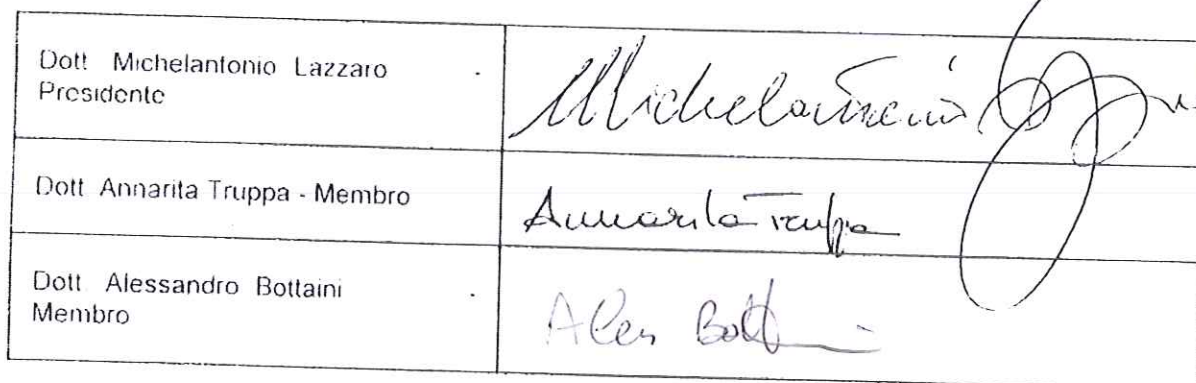 Dott Michelantonio Lazzaro
Presidente
Michelantonio
Dott Annarita Truppa - Membro
Annarita Truppa
Dott Alessandro Bottaini
Membro
Aless Bott